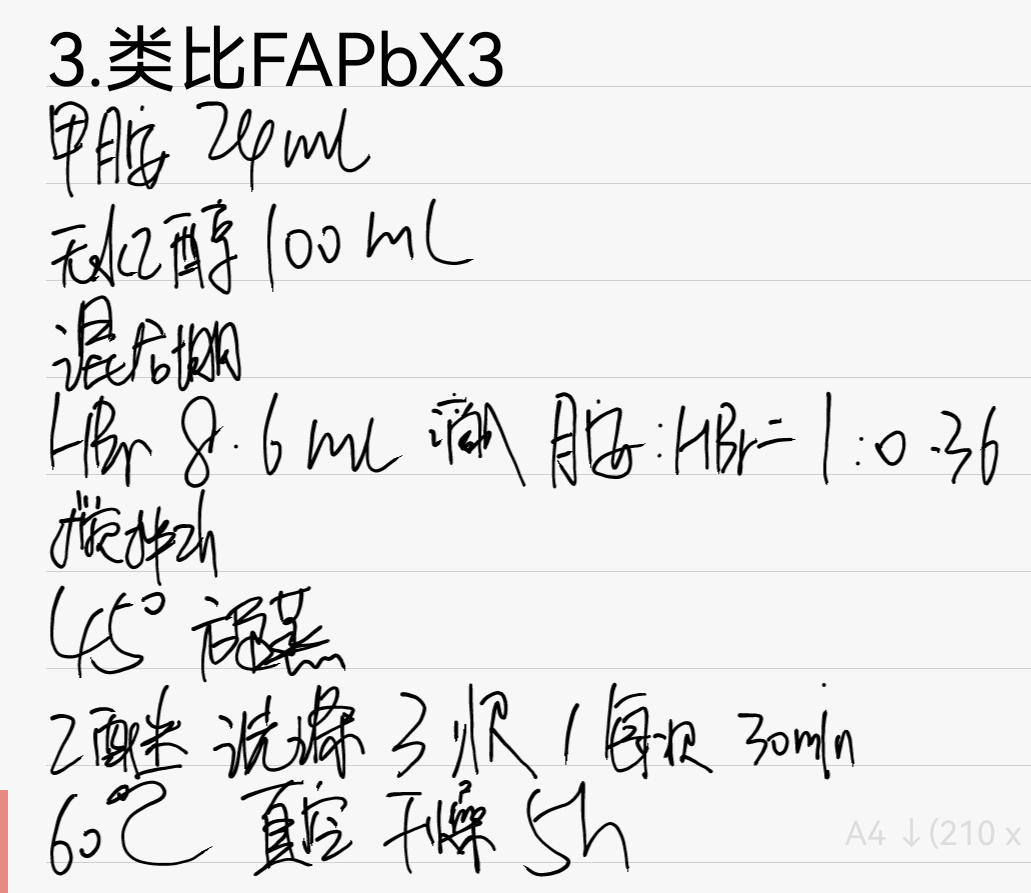 3.类比FAPbX3
甲胺 24ml
无水乙醇 100ml
混合期
HBr 8.6ml 滴入 胺:HBr=1:0.36
搅拌2h
45° 旋蒸
乙醚 洗涤 3次/每次 30min
60℃ 真空干燥 5h
A4 ↓(210 x